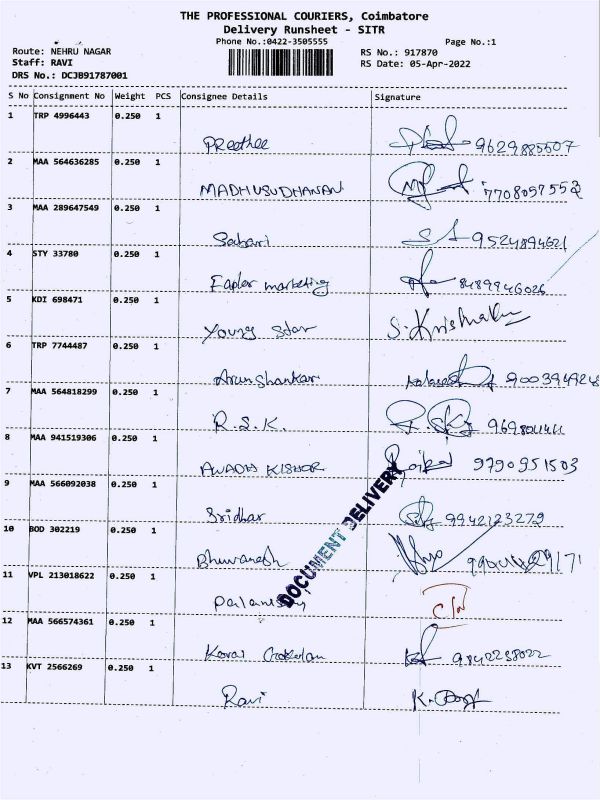 THE PROFESSIONAL COURIERS, Coimbatore
Delivery Runsheet - SITR
Phone No.:0422-3505555 Page No.:1
Route: NEHRU NAGAR RS No.: 917870
Staff: RAVI RS Date: 05-Apr-2022
DRS No.: DCJB91787001
S No Consignment No Weight PCS Consignee Details Signature
1 TRP 4996443 0.250 1
Preethee 9629885507
2 MAA 564636285 0.250 1
MADHUSUDHANAN 7708057552
3 MAA 289647549 0.250 1
Sabari 9524894621
4 STY 33780 0.250 1
marketing 8489946026
5 KDI 698471 0.250 1
Young Star S. Krishnaku
6 TRP 7744487 0.250 1
Arunshankar
7 MAA 564818299 0.250 1
R.S.K.
8 MAA 941519306 0.250 1
AWADH KISHOR 9790951503
9 MAA 566092038 0.250 1
Sridhar 9942123279
DOCUMENT DELIVERY
10 BOD 302219 0.250 1
Bhuvanesh
11 VPL 213018622 0.250 1
Palanisamy
12 MAA 566574361 0.250 1
Kovai 9842238022
13 KVT 2566269 0.250 1
Ravi